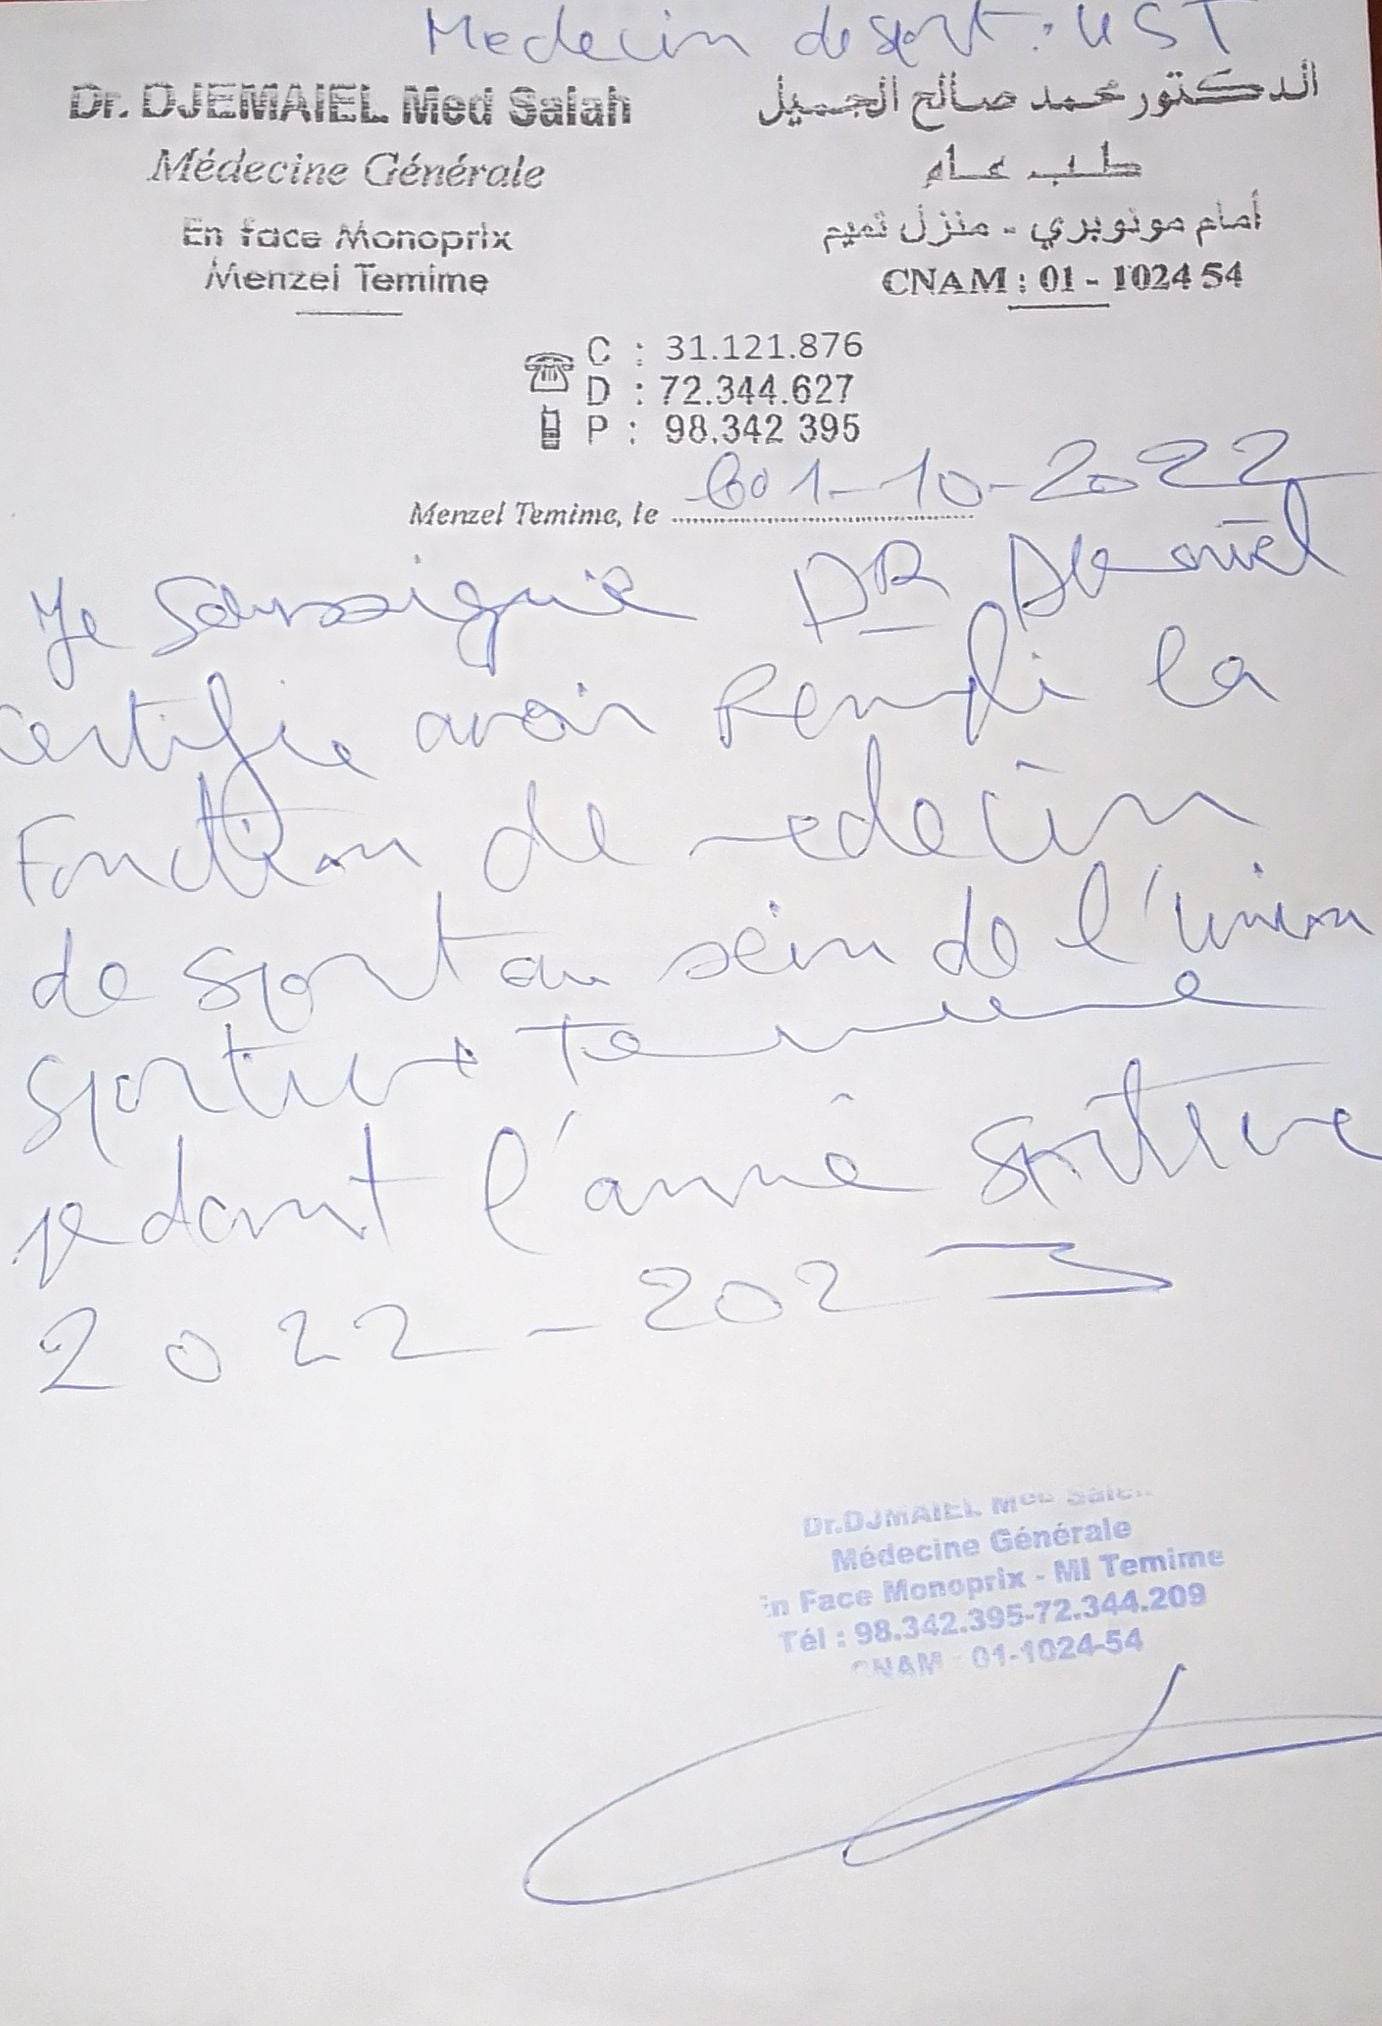 Medecin de sport : UST
Dr. DJEMAIEL Med Salah
Médecine Générale
En face Monoprix
Menzel Temime
الدكتور محمد صالح الجميل
طب عام
أمام مونوبري - منزل تميم
CNAM : 01 - 1024 54
C : 31.121.876
D : 72.344.627
P : 98.342 395
Menzel Temime, le 01-10-2022
Je Soussigné DR
certifie avoir Rempli la
Fonction de medecin
de sport au sein de l'union
sportive Temime
pedant l'année sportive
2022-2023
Dr.DJMAIEL Med Salah
Médecine Générale
En Face Monoprix - Ml Temime
Tél : 98.342.395-72.344.209
CNAM : 01-1024-54